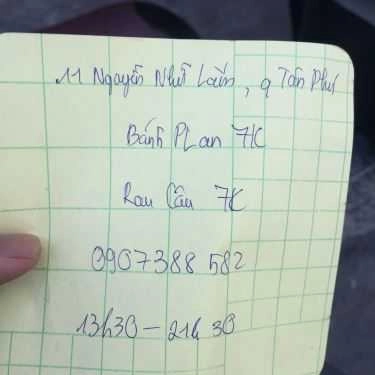 11 Nguyễn Nhữ Lãm, q Tân Phú
Bánh PLan 7K
Rau Câu 7K
0907388 582
13h30 - 21h 30